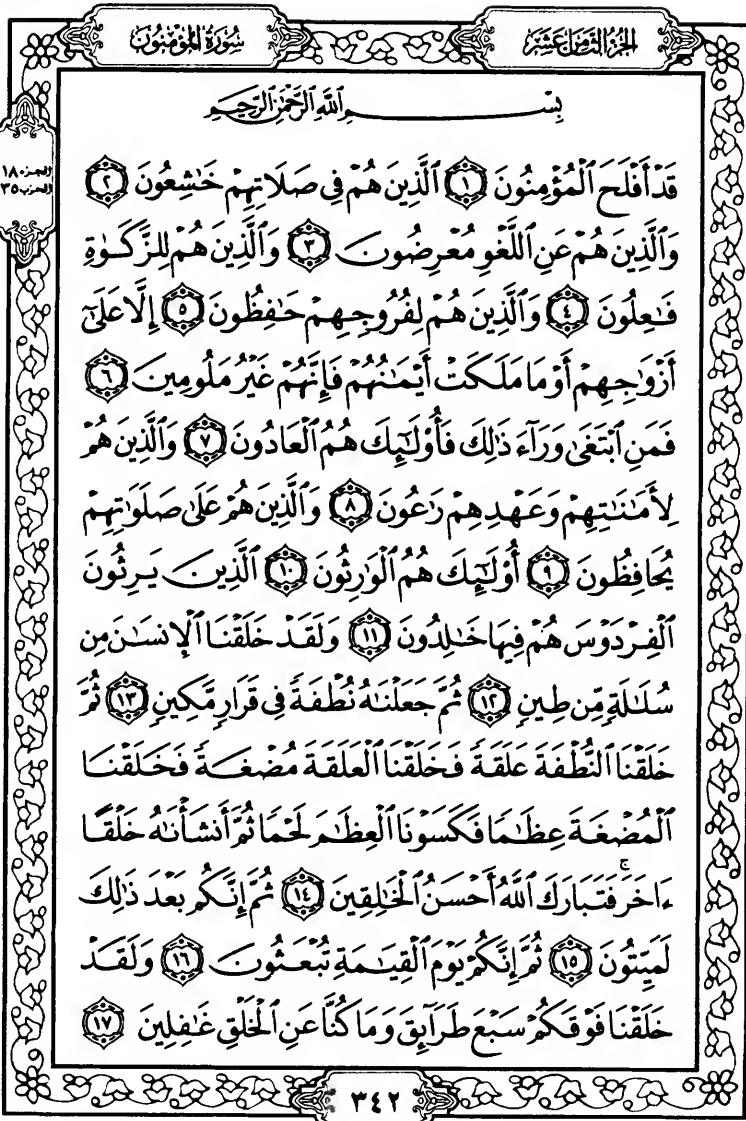 الجزء الثامن عشر
سُورَةُ المُؤْمِنُون
بِسْمِ ٱللَّهِ ٱلرَّحْمَٰنِ ٱلرَّحِيمِ
الجزء ١٨
الحزب ٣٥
قَدْ أَفْلَحَ ٱلْمُؤْمِنُونَ ١ ٱلَّذِينَ هُمْ فِى صَلَاتِهِمْ خَٰشِعُونَ ٢
وَٱلَّذِينَ هُمْ عَنِ ٱللَّغْوِ مُعْرِضُونَ ٣ وَٱلَّذِينَ هُمْ لِلزَّكَوٰةِ
فَٰعِلُونَ ٤ وَٱلَّذِينَ هُمْ لِفُرُوجِهِمْ حَٰفِظُونَ ٥ إِلَّا عَلَىٰٓ
أَزْوَٰجِهِمْ أَوْ مَا مَلَكَتْ أَيْمَٰنُهُمْ فَإِنَّهُمْ غَيْرُ مَلُومِينَ ٦
فَمَنِ ٱبْتَغَىٰ وَرَآءَ ذَٰلِكَ فَأُو۟لَٰٓئِكَ هُمُ ٱلْعَادُونَ ٧ وَٱلَّذِينَ هُمْ
لِأَمَٰنَٰتِهِمْ وَعَهْدِهِمْ رَٰعُونَ ٨ وَٱلَّذِينَ هُمْ عَلَىٰ صَلَوَٰتِهِمْ
يُحَافِظُونَ ٩ أُو۟لَٰٓئِكَ هُمُ ٱلْوَٰرِثُونَ ١٠ ٱلَّذِينَ يَرِثُونَ
ٱلْفِرْدَوْسَ هُمْ فِيهَا خَٰلِدُونَ ١١ وَلَقَدْ خَلَقْنَا ٱلْإِنسَٰنَ مِن
سُلَٰلَةٍ مِّن طِينٍ ١٢ ثُمَّ جَعَلْنَٰهُ نُطْفَةً فِى قَرَارٍ مَّكِينٍ ١٣ ثُمَّ
خَلَقْنَا ٱلنُّطْفَةَ عَلَقَةً فَخَلَقْنَا ٱلْعَلَقَةَ مُضْغَةً فَخَلَقْنَا
ٱلْمُضْغَةَ عِظَٰمًا فَكَسَوْنَا ٱلْعِظَٰمَ لَحْمًا ثُمَّ أَنشَأْنَٰهُ خَلْقًا
ءَاخَرَ ۚ فَتَبَارَكَ ٱللَّهُ أَحْسَنُ ٱلْخَٰلِقِينَ ١٤ ثُمَّ إِنَّكُم بَعْدَ ذَٰلِكَ
لَمَيِّتُونَ ١٥ ثُمَّ إِنَّكُمْ يَوْمَ ٱلْقِيَٰمَةِ تُبْعَثُونَ ١٦ وَلَقَدْ
خَلَقْنَا فَوْقَكُمْ سَبْعَ طَرَآئِقَ وَمَا كُنَّا عَنِ ٱلْخَلْقِ غَٰفِلِينَ ١٧
٣٤٢